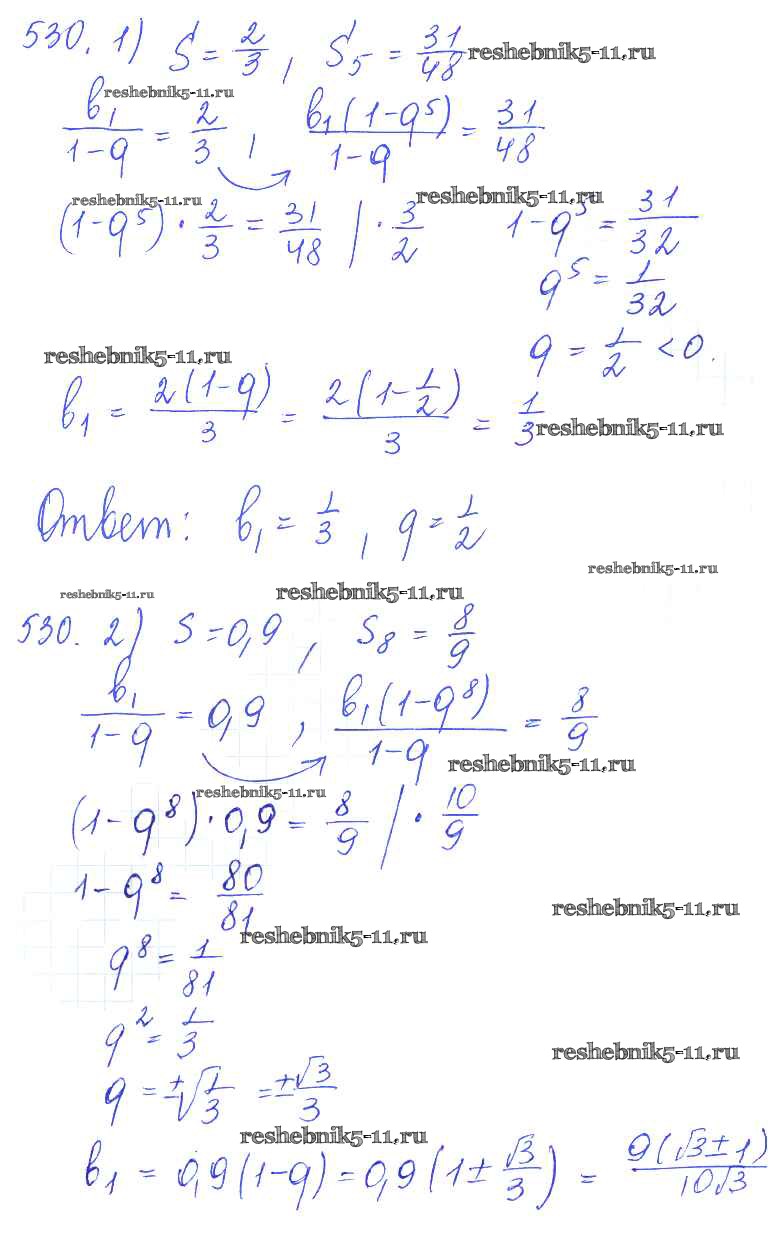 530. 1) S = 2/3, S₅ = 31/48 reshebnik5-11.ru
reshebnik5-11.ru
b₁/(1-q) = 2/3, b₁(1-q⁵)/(1-q) = 31/48
reshebnik5-11.ru reshebnik5-11.ru
(1-q⁵)·2/3 = 31/48 |·3/2 1-q⁵ = 31/32
q⁵ = 1/32
reshebnik5-11.ru q = 1/2 < 0.
b₁ = 2(1-q)/3 = 2(1-1/2)/3 = 1/3 reshebnik5-11.ru
Ответ: b₁ = 1/3, q = 1/2
reshebnik5-11.ru
reshebnik5-11.ru reshebnik5-11.ru
530. 2) S = 0,9, S₈ = 8/9
b₁/(1-q) = 0,9, b₁(1-q⁸)/(1-q) = 8/9
reshebnik5-11.ru
reshebnik5-11.ru
(1-q⁸)·0,9 = 8/9 |·10/9
1-q⁸ = 80/81
reshebnik5-11.ru
reshebnik5-11.ru
q⁸ = 1/81
q² = 1/3
reshebnik5-11.ru
q = ±√(1/3) = ±√3/3
reshebnik5-11.ru
b₁ = 0,9(1-q) = 0,9(1±√3/3) = 9(√3±1)/10√3